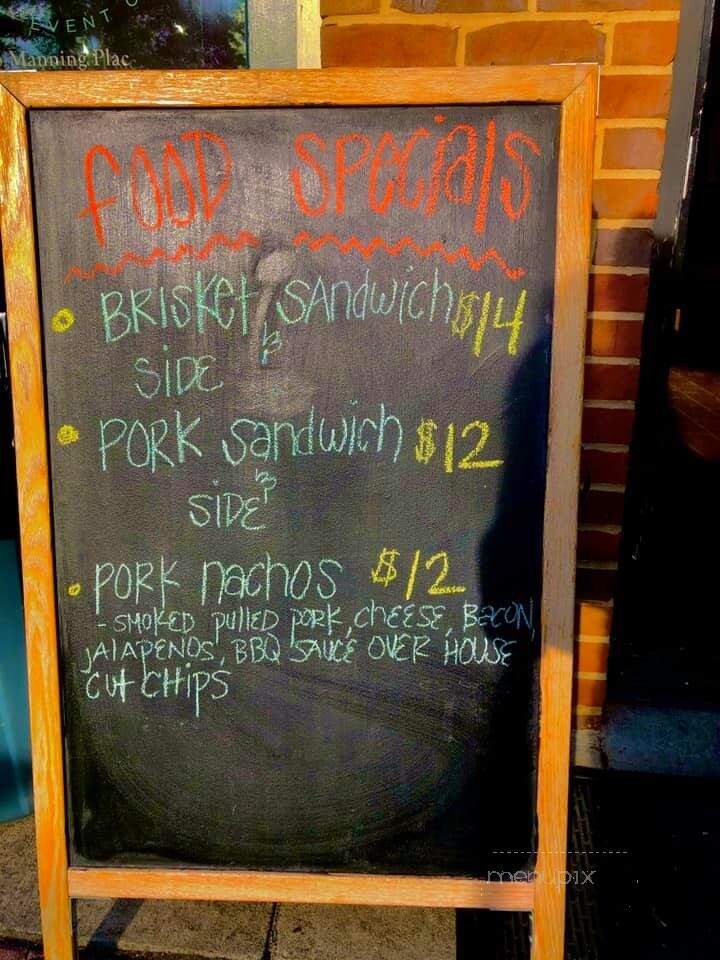 EVENT
Manning Plac
FOOD SPECIALS
BRISKET SANDWICH $14
&
SIDE
PORK SANDWICH $12
&
SIDE
PORK NACHOS $12
- SMOKED PULLED PORK, CHEESE, BACON,
JALAPENOS, BBQ SAUCE OVER HOUSE
CUT CHIPS
menupix